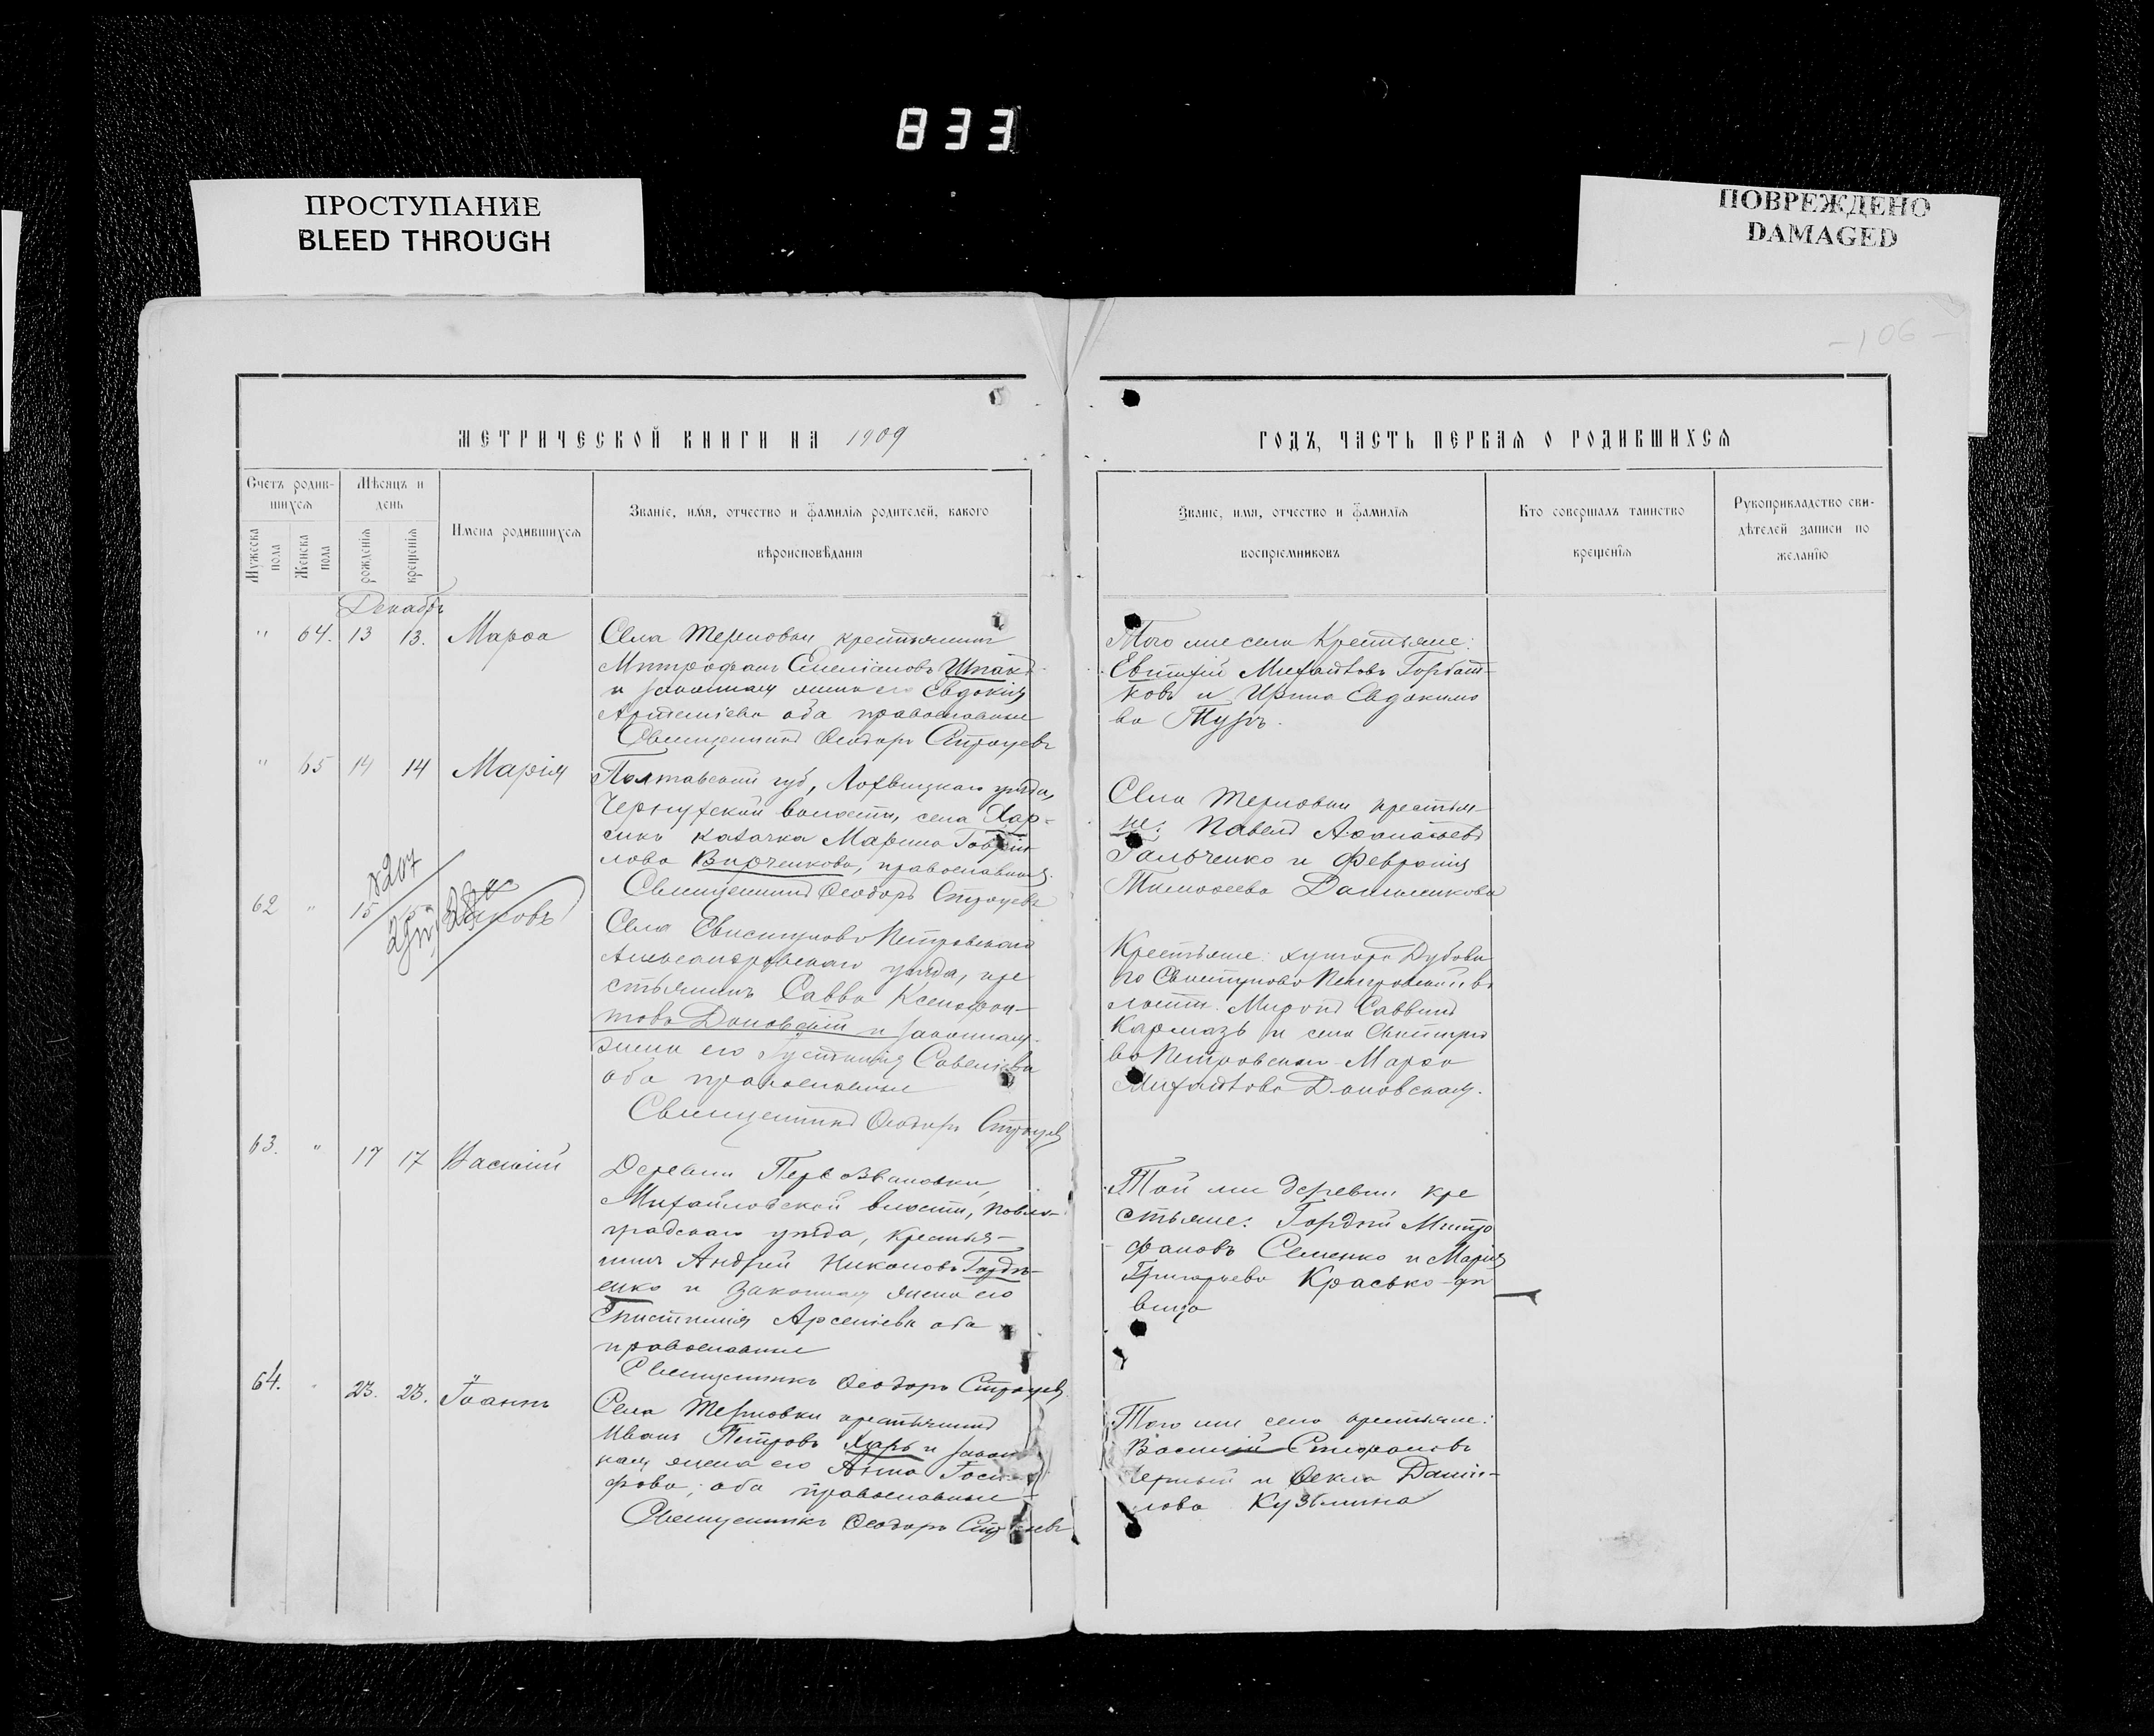 833
ПРОСТУПАНИЕ
BLEED THROUGH
ПОВРЕЖДЕНО
DAMAGED
-106-
МЕТРИЧЕСКОЙ КНИГИ НА 1909
ГОДЪ, ЧАСТЬ ПЕРВАЯ О РОДИВШИХСЯ
Счетъ родив-
шихся
Мѣсяцъ и
день
Мужеска
пола
Женска
пола
рожденія
крещенія
Имена родившихся
Званіе, имя, отчество и фамилія родителей, какого
вѣроисповѣданія
Званіе, имя, отчество и фамилія
воспріемниковъ
Кто совершалъ таинство
крещенія
Рукоприкладство сви-
дѣтелей записи по
желанію
Декабрь
" 64. 13 13. Марѳа
Села Терновки крестьянинъ
Митрофанъ Емеліановъ
и законная жена его Евдокія
Артеміева оба православные
Священникъ Ѳеодоръ
Того же села Крестьяне:
Евтихій Михайловъ Горбат-
ковъ и Ирина Евдокимо
ва Тузъ.
" 65 14 14 Марія
Полтавской губ, Лохвицкаго уѣзда,
Чернухской волости, села Хар-
сики казачка Марина Гаврі-
лова Вирченкова, православная.
Священникъ Ѳеодоръ
Села Терновки крестья-
не: Павелъ Аѳанасьевъ
Гальченко и Февронія
Тимоѳеева
62 " 15
№207
Іаковъ
Села Свистуново Петровскаго
Александровскаго уѣзда, кре
стьянинъ Савва Ксенофон-
товъ Доновскій и законная
жена его Іустинія Савеліева
оба православные
Священникъ Ѳеодоръ
Крестьяне: хутора Дубова
го Свистуново Петровской во
лости Миронъ Саввинъ
Кармазь и села Свистуно
во Петровскаго Марѳа
Михайлова Доновская.
63. " 17 17 Василій
Деревни Первозвановки,
Михайловской волости, Павло-
градскаго уѣзда, крестья-
нинъ Андрей Никоновъ Горди-
енко и законная жена его
Христинія Арсеніева оба
православные
Священникъ Ѳеодоръ
Той же деревни кре
стьяне: Гордѣй Митро
фановъ Семенко и Марія
Григорьева Красько - дѣ
вица
64. " 23. 23. Іоаннъ
Села Терновки крестьянинъ
Иванъ Петровъ Харь и закон
ная жена его Анна Іоси-
фова, оба православные
Священникъ Ѳеодоръ
Того же села крестьяне:
Василій Стефановъ
Черный и Ѳекла Даніи-
лова Кузьмина